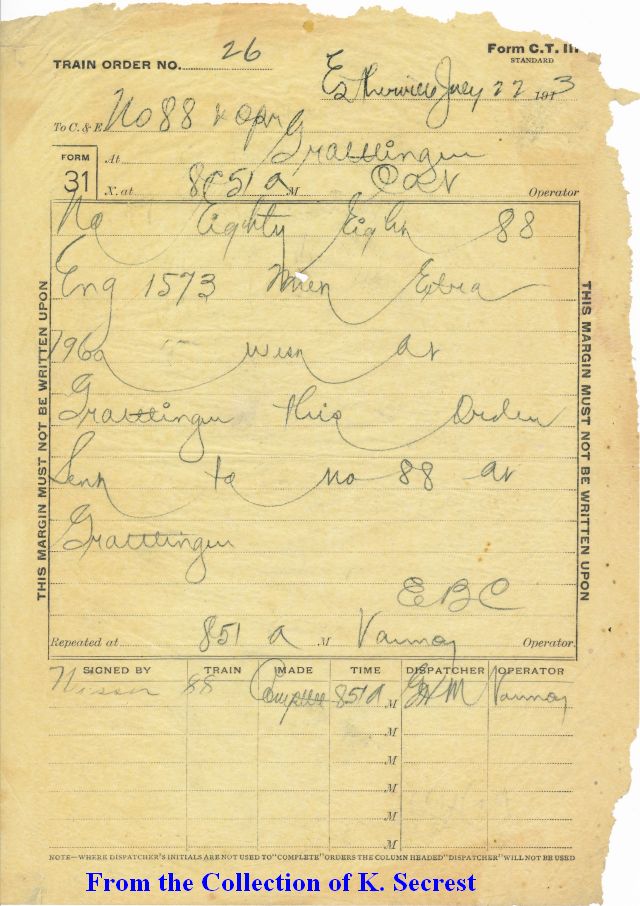 Form C.T. III
STANDARD
TRAIN ORDER NO. 26
Estherville July 22 1913
To C. & E. No 88 & opr
At Graettinger
X. at 851 a M Operator
FORM
31
No Eighty Eight 88
Eng 1573 Meet Extra
796 West at
Graettinger this Order
Sent to No 88 at
Graettinger
EBC
Repeated at 851 a M Vannoy Operator
SIGNED BY TRAIN MADE TIME DISPATCHER OPERATOR
Nissen 88 Complete 851 a M Vannoy
M
M
M
M
M
THIS MARGIN MUST NOT BE WRITTEN UPON
THIS MARGIN MUST NOT BE WRITTEN UPON
NOTE—WHERE DISPATCHER'S INITIALS ARE NOT USED TO "COMPLETE" ORDERS THE COLUMN HEADED "DISPATCHER" WILL NOT BE USED
From the Collection of K. Secrest